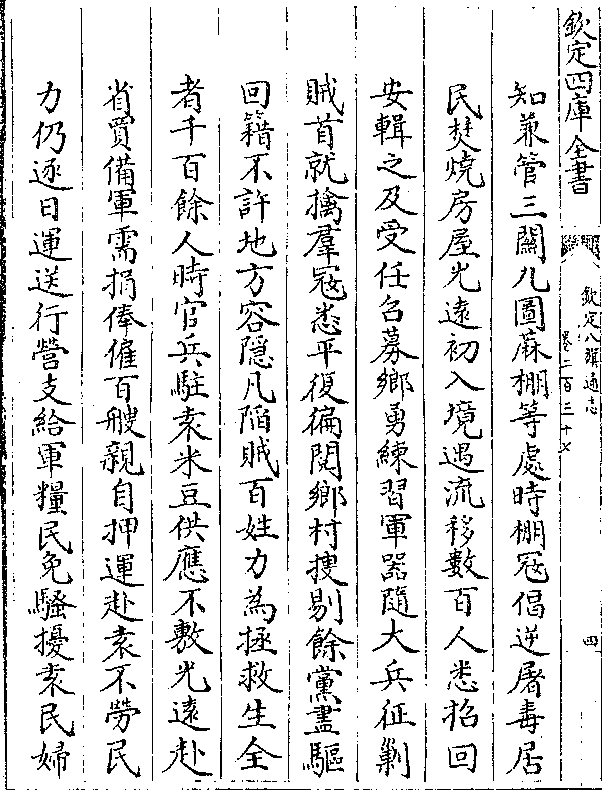 欽定四庫全書
欽定八旗通志
卷二百三十七
四
知兼管三關九圖蔴棚等處時棚宼倡逆屠毒居
民焚燒房屋光遠初入境遇流移數百人悉招回
安輯之及受任召募鄉勇練習軍器隨大兵征剿
賊首就擒羣宼悉平復徧閱鄉村搜剔餘黨盡驅
回籍不許地方容隱凡陷賊百姓力為拯救生全
者千百餘人時官兵駐袁米豆供應不敷光遠赴
省買備軍需捐俸僱百艘親自押運赴袁不勞民
力仍逐日運送行營支給軍糧民免騷擾袁民婦